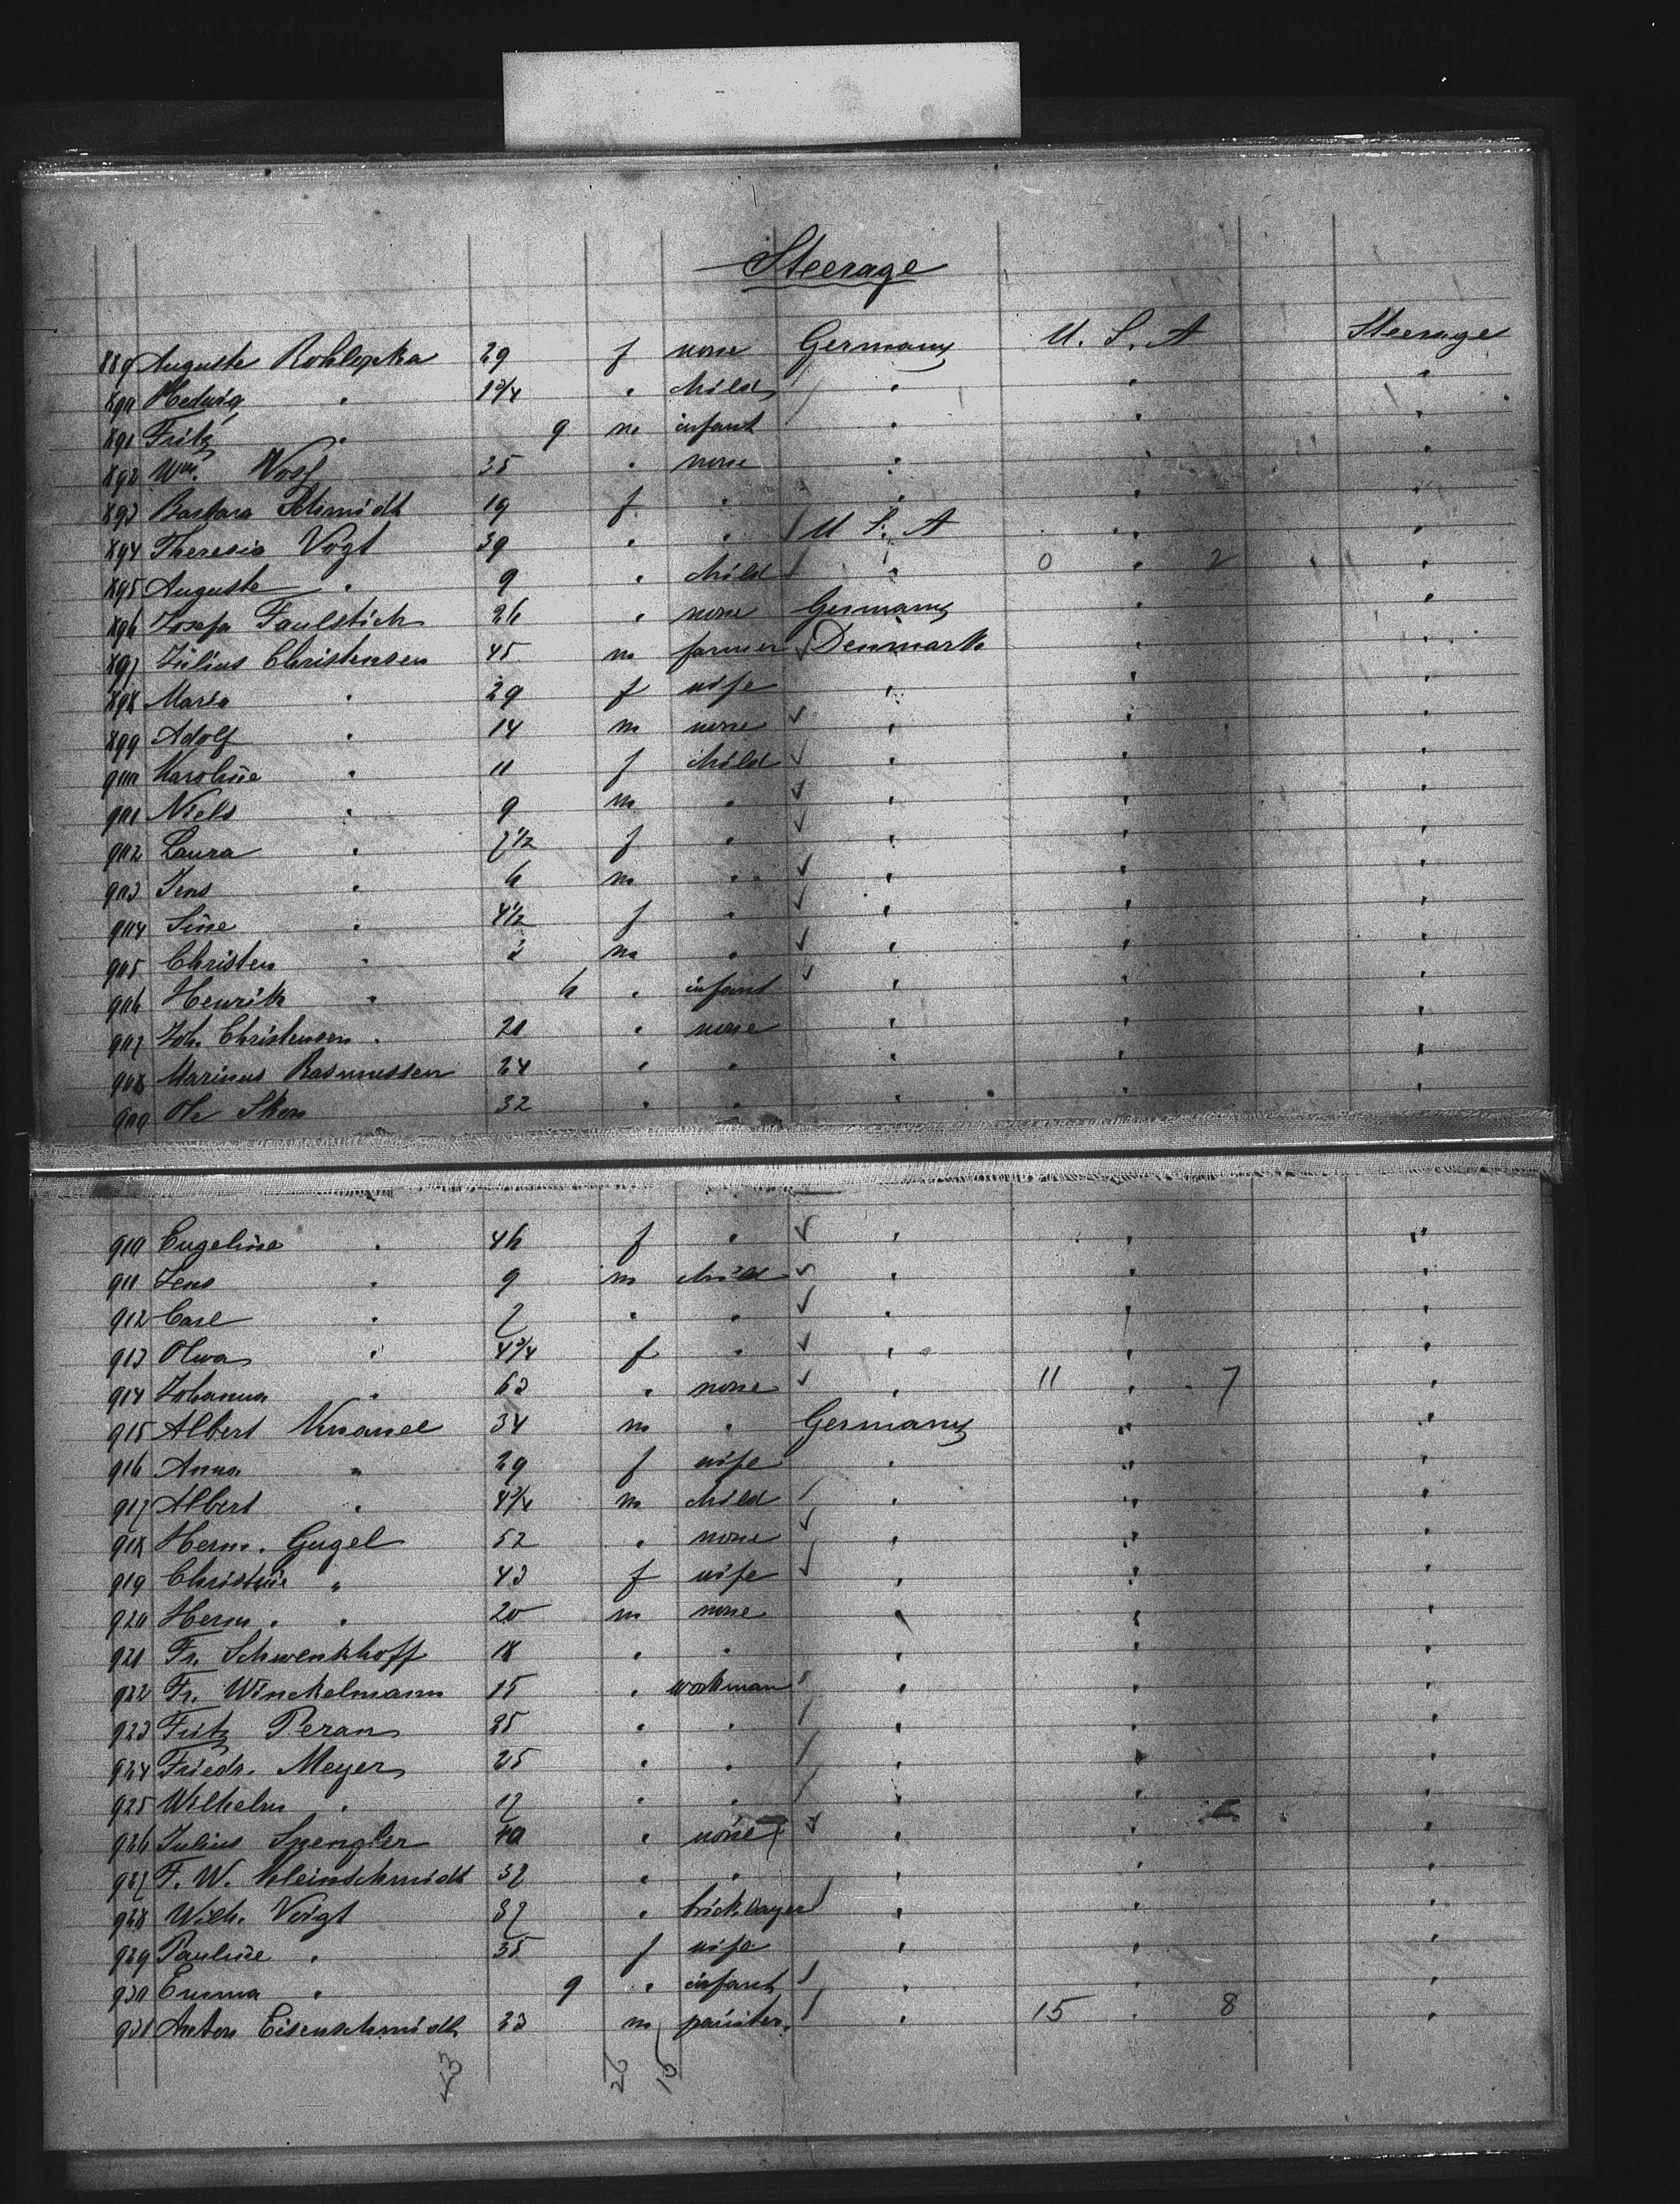 Steerage
889 Auguste Rohlopka 29 f none Germany U. S. A Steerage
890 Hedwig " 1 3/4 " child " " "
891 Fritz " 9 m infant " " "
892 Wm. 35 " none " " "
893 Barbara Schmidt 19 f " " " "
894 Theresia Vogt 39 " " U S. A " "
895 Auguste " 9 " child " 0 " 2 "
896 Josefa Faulstich 26 " none Germany " "
897 Julius Christensen 45 m farmer Denmark " "
898 Maria " 29 f wife " " "
899 Adolf " 14 m none " " "
900 Karoline " 11 f child " " "
901 Niels " 9 m " " " "
902 Laura " 7 1/2 f " " " "
903 Jens " 6 m " " " "
904 Sine " 4 1/2 f " " " "
905 Christen " 3 m " " " "
906 Henrik " 6 " infant " " "
907 Joh. Christensen " 20 " none " " "
908 Marinus Rasmussen 24 " " " " "
909 Ole 32 " " " " "
910 Engeline " 46 f " " " "
911 Jens " 9 m child " " "
912 Carl " 7 " " " " "
913 Olva " 4 3/4 f " " " "
914 Johanna " 63 " none " 11 " 7 "
915 Albert 34 m " Germany " "
916 Anna " 29 f wife " " "
917 Albert " 4 3/4 m child " " "
918 Herm. Gugel 52 " none " " "
919 Christine " 43 f wife " " "
920 Herm. " 20 m none " " "
921 Fr. Schwenkhoff 18 " " " " "
922 Fr. Winckelmann 15 " workman " " "
923 Fritz Peran 25 " " " " "
924 Friedr. Meyer 25 " " " " "
925 Wilhelm " 17 " " " " "
926 Julius Spengler 40 " none " " "
927 F. W. Kleinschmidt 37 " " " " "
928 Wilh. Voigt 37 " bricklayer " " "
929 Pauline " 35 f wife " " "
930 Emma " 9 " infant " " "
931 Anton Eisenschmidt 33 m painter. " 15 " 8 "